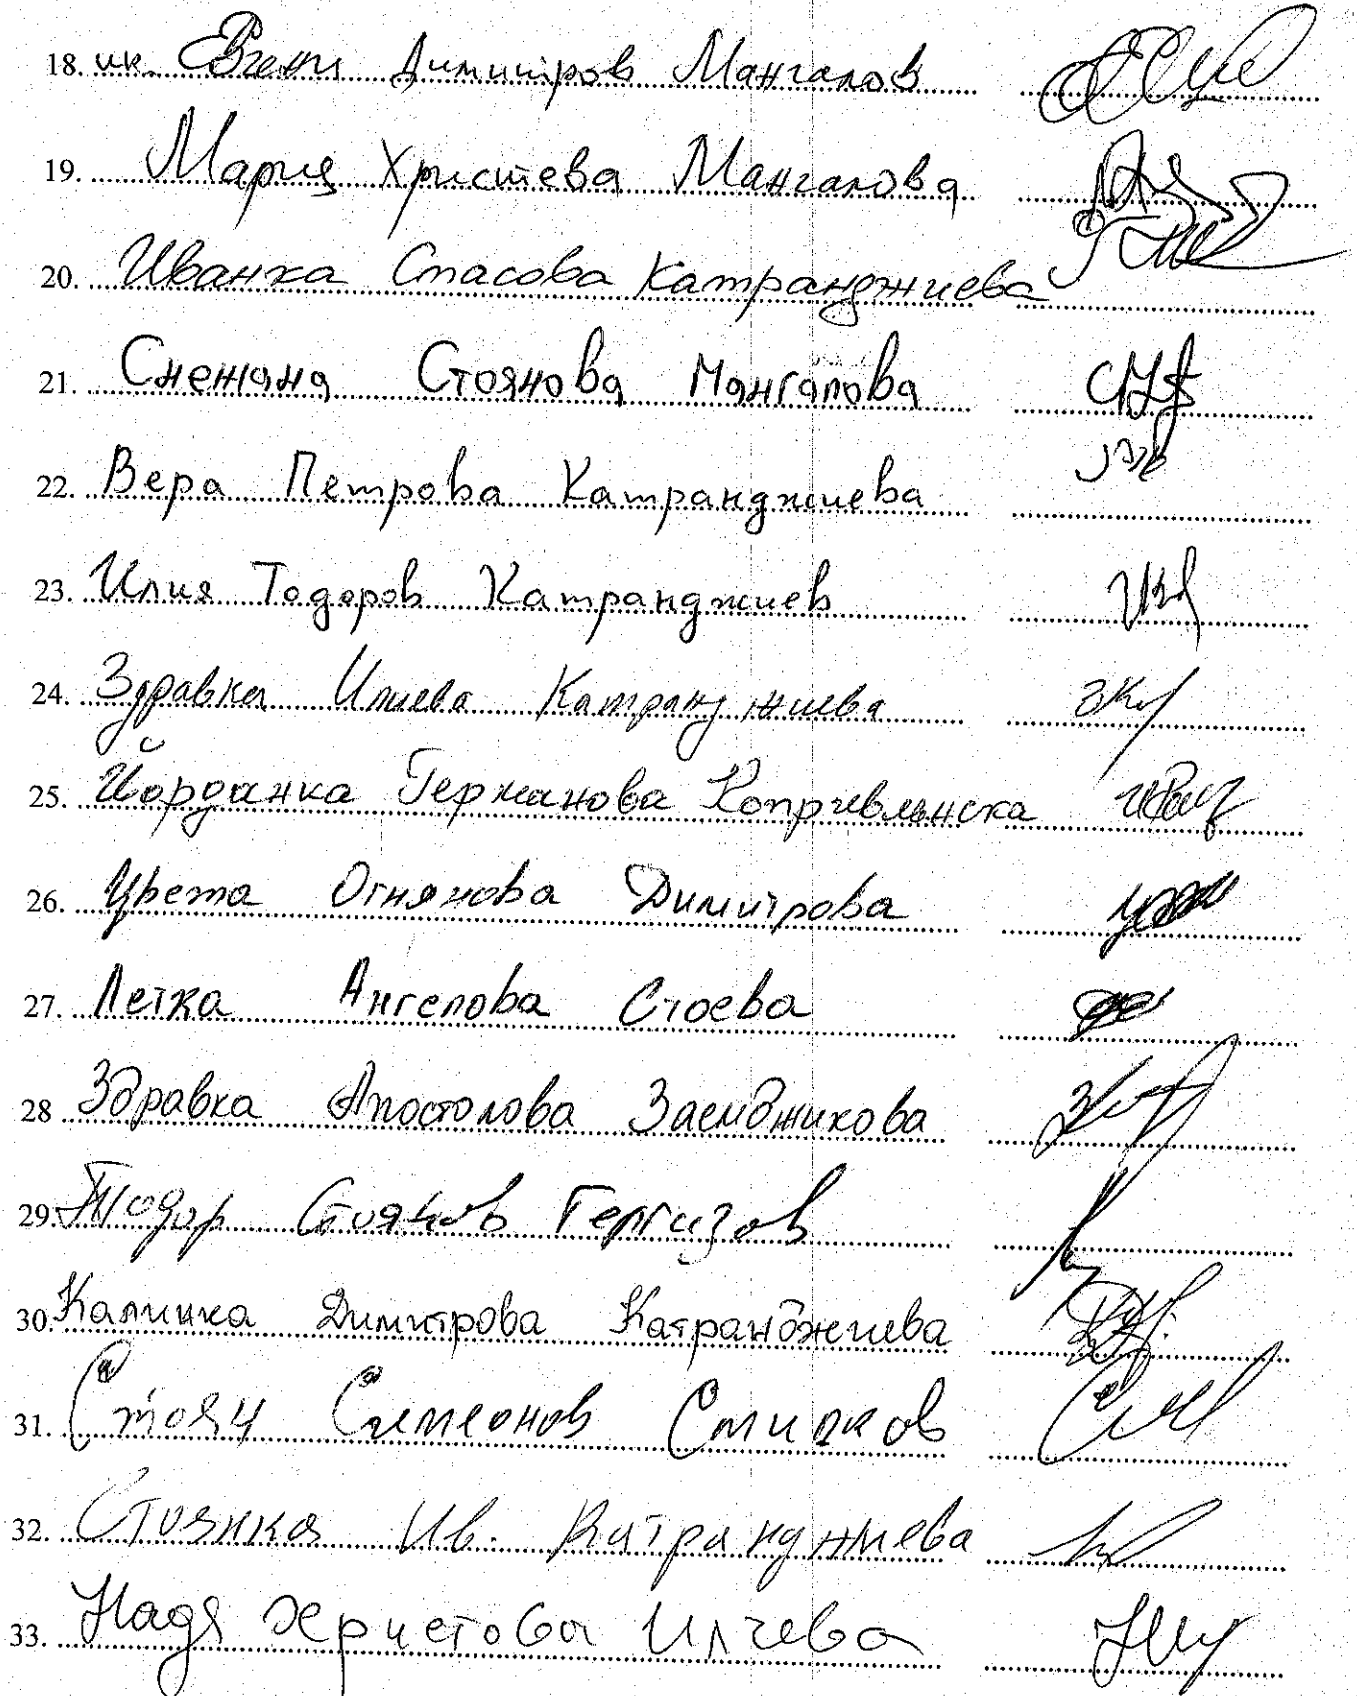 18. ик. Евгени Димитров Мангалов
19. Мария Христева Мангалова
20. Иванка Спасова Катранджиева
21. Снежана Стоянова Мангалова
22. Вера Петрова Катранджиева
23. Илия Тодоров Катранджиев
24. Здравка Илиева Катранджиева
25. Йорданка Германова Копривленска
26. Цвета Огнянова Димитрова
27. Летка Ангелова Стоева
28 Здравка Апостолова Заемджикова
29. Тодор Стоянов Гергизов
30. Калинка Димитрова Катранджиева
31. Стоян Симеонов Смилков
32. Стоянка Ив. Катранджиева
33. Надя Христова Илчева